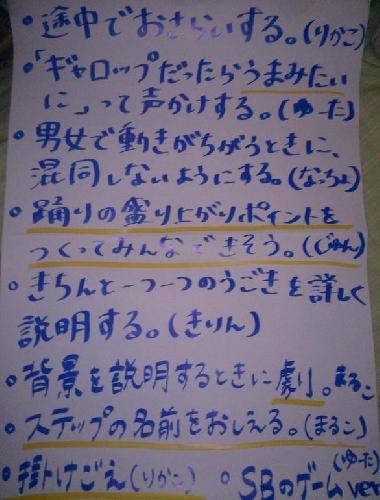 • 途中でおさらいする。(りかこ)
• 「ギャロップだったらうまみたい
に」って声かけする。(ゆーた)
• 男女で動きがちがうときに、
混同しないようにする。(なっちょ)
• 踊りの盛り上がりポイントを
つくってみんなできそう。(じゅん)
• きちんと一つ一つのうごきを詳しく
説明する。(きりん)
• 背景を説明するときに劇り。まるこ
• ステップの名前をおしえる。(まるこ)
• 掛けごえ(りかこ) • SBのゲームver(ゆーた)